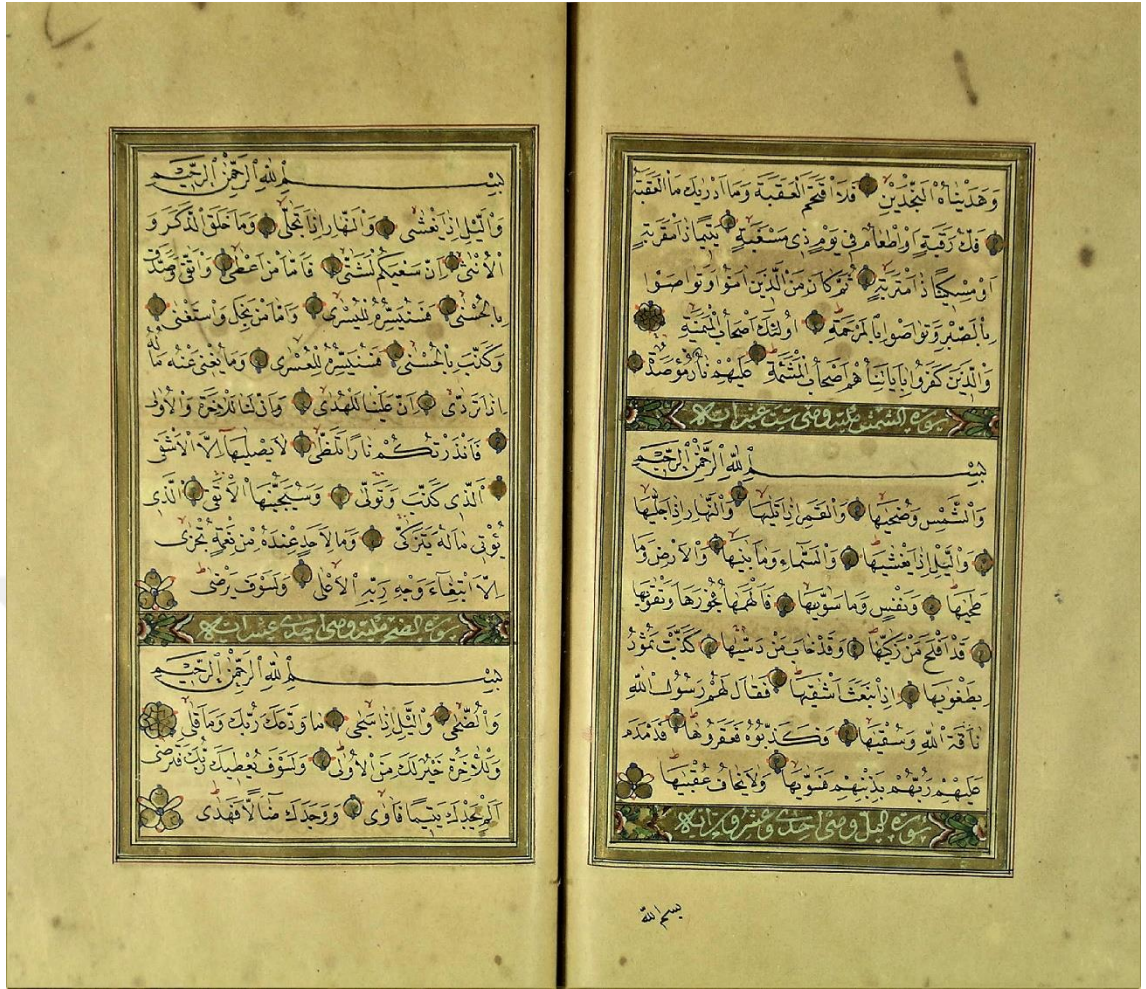 وَهَدَيْنَاهُ النَّجْدَيْنِ فَلَا اقْتَحَمَ الْعَقَبَةَ وَمَا اَدْرٰيكَ مَا الْعَقَبَةُ
فَكُّ رَقَبَةٍ اَوْ اِطْعَامٌ فِي يَوْمٍ ذِي مَسْغَبَةٍ يَتِيمًا ذَا مَقْرَبَةٍ
اَوْ مِسْكِينًا ذَا مَتْرَبَةٍ ثُمَّ كَانَ مِنَ الَّذِينَ اٰمَنُوا وَتَوَاصَوْا
بِالصَّبْرِ وَتَوَاصَوْا بِالْمَرْحَمَةِ اُولٰئِكَ اَصْحَابُ الْمَيْمَنَةِ
وَالَّذِينَ كَفَرُوا بِاٰيَاتِنَا هُمْ اَصْحَابُ الْمَشْئَمَةِ عَلَيْهِمْ نَارٌ مُؤْصَدَةٌ
سورة الشمس مكية وهي ست عشر اية
بِسْمِ اللّٰهِ الرَّحْمٰنِ الرَّحِيمِ
وَالشَّمْسِ وَضُحٰيهَا وَالْقَمَرِ اِذَا تَلٰيهَا وَالنَّهَارِ اِذَا جَلّٰيهَا
وَالَّيْلِ اِذَا يَغْشٰيهَا وَالسَّمَاءِ وَمَا بَنٰيهَا وَالْاَرْضِ وَمَا
طَحٰيهَا وَنَفْسٍ وَمَا سَوّٰيهَا فَاَلْهَمَهَا فُجُورَهَا وَتَقْوٰيهَا
قَدْ اَفْلَحَ مَنْ زَكّٰيهَا وَقَدْ خَابَ مَنْ دَسّٰيهَا كَذَّبَتْ ثَمُودُ
بِطَغْوٰيهَا اِذِ انْبَعَثَ اَشْقٰيهَا فَقَالَ لَهُمْ رَسُولُ اللّٰهِ
نَاقَةَ اللّٰهِ وَسُقْيٰهَا فَكَذَّبُوهُ فَعَقَرُوهَا فَدَمْدَمَ
عَلَيْهِمْ رَبُّهُمْ بِذَنْبِهِمْ فَسَوّٰيهَا وَلَا يَخَافُ عُقْبٰيهَا
سورة اليل وهي احدى وعشرون اية
بسم الله
بِسْمِ اللّٰهِ الرَّحْمٰنِ الرَّحِيمِ
وَالَّيْلِ اِذَا يَغْشٰى وَالنَّهَارِ اِذَا تَجَلّٰى وَمَا خَلَقَ الذَّكَرَ وَ
الْاُنْثٰى اِنَّ سَعْيَكُمْ لَشَتّٰى فَاَمَّا مَنْ اَعْطٰى وَاتَّقٰى وَصَدَّقَ
بِالْحُسْنٰى فَسَنُيَسِّرُهُ لِلْيُسْرٰى وَاَمَّا مَنْ بَخِلَ وَاسْتَغْنٰى
وَكَذَّبَ بِالْحُسْنٰى فَسَنُيَسِّرُهُ لِلْعُسْرٰى وَمَا يُغْنِي عَنْهُ مَالُهُ
اِذَا تَرَدّٰى اِنَّ عَلَيْنَا لَلْهُدٰى وَاِنَّ لَنَا لَلْاٰخِرَةَ وَالْاُولٰى
فَاَنْذَرْتُكُمْ نَارًا تَلَظّٰى لَا يَصْلٰيهَا اِلَّا الْاَشْقَى
الَّذِي كَذَّبَ وَتَوَلّٰى وَسَيُجَنَّبُهَا الْاَتْقَى الَّذِي
يُؤْتِي مَالَهُ يَتَزَكّٰى وَمَا لِاَحَدٍ عِنْدَهُ مِنْ نِعْمَةٍ تُجْزٰى
اِلَّا ابْتِغَاءَ وَجْهِ رَبِّهِ الْاَعْلٰى وَلَسَوْفَ يَرْضٰى
سورة الضحى مكية وهي احدى عشر اية
بِسْمِ اللّٰهِ الرَّحْمٰنِ الرَّحِيمِ
وَالضُّحٰى وَالَّيْلِ اِذَا سَجٰى مَا وَدَّعَكَ رَبُّكَ وَمَا قَلٰى
وَلَلْاٰخِرَةُ خَيْرٌ لَكَ مِنَ الْاُولٰى وَلَسَوْفَ يُعْطِيكَ رَبُّكَ فَتَرْضٰى
اَلَمْ يَجِدْكَ يَتِيمًا فَاٰوٰى وَوَجَدَكَ ضَالًّا فَهَدٰى